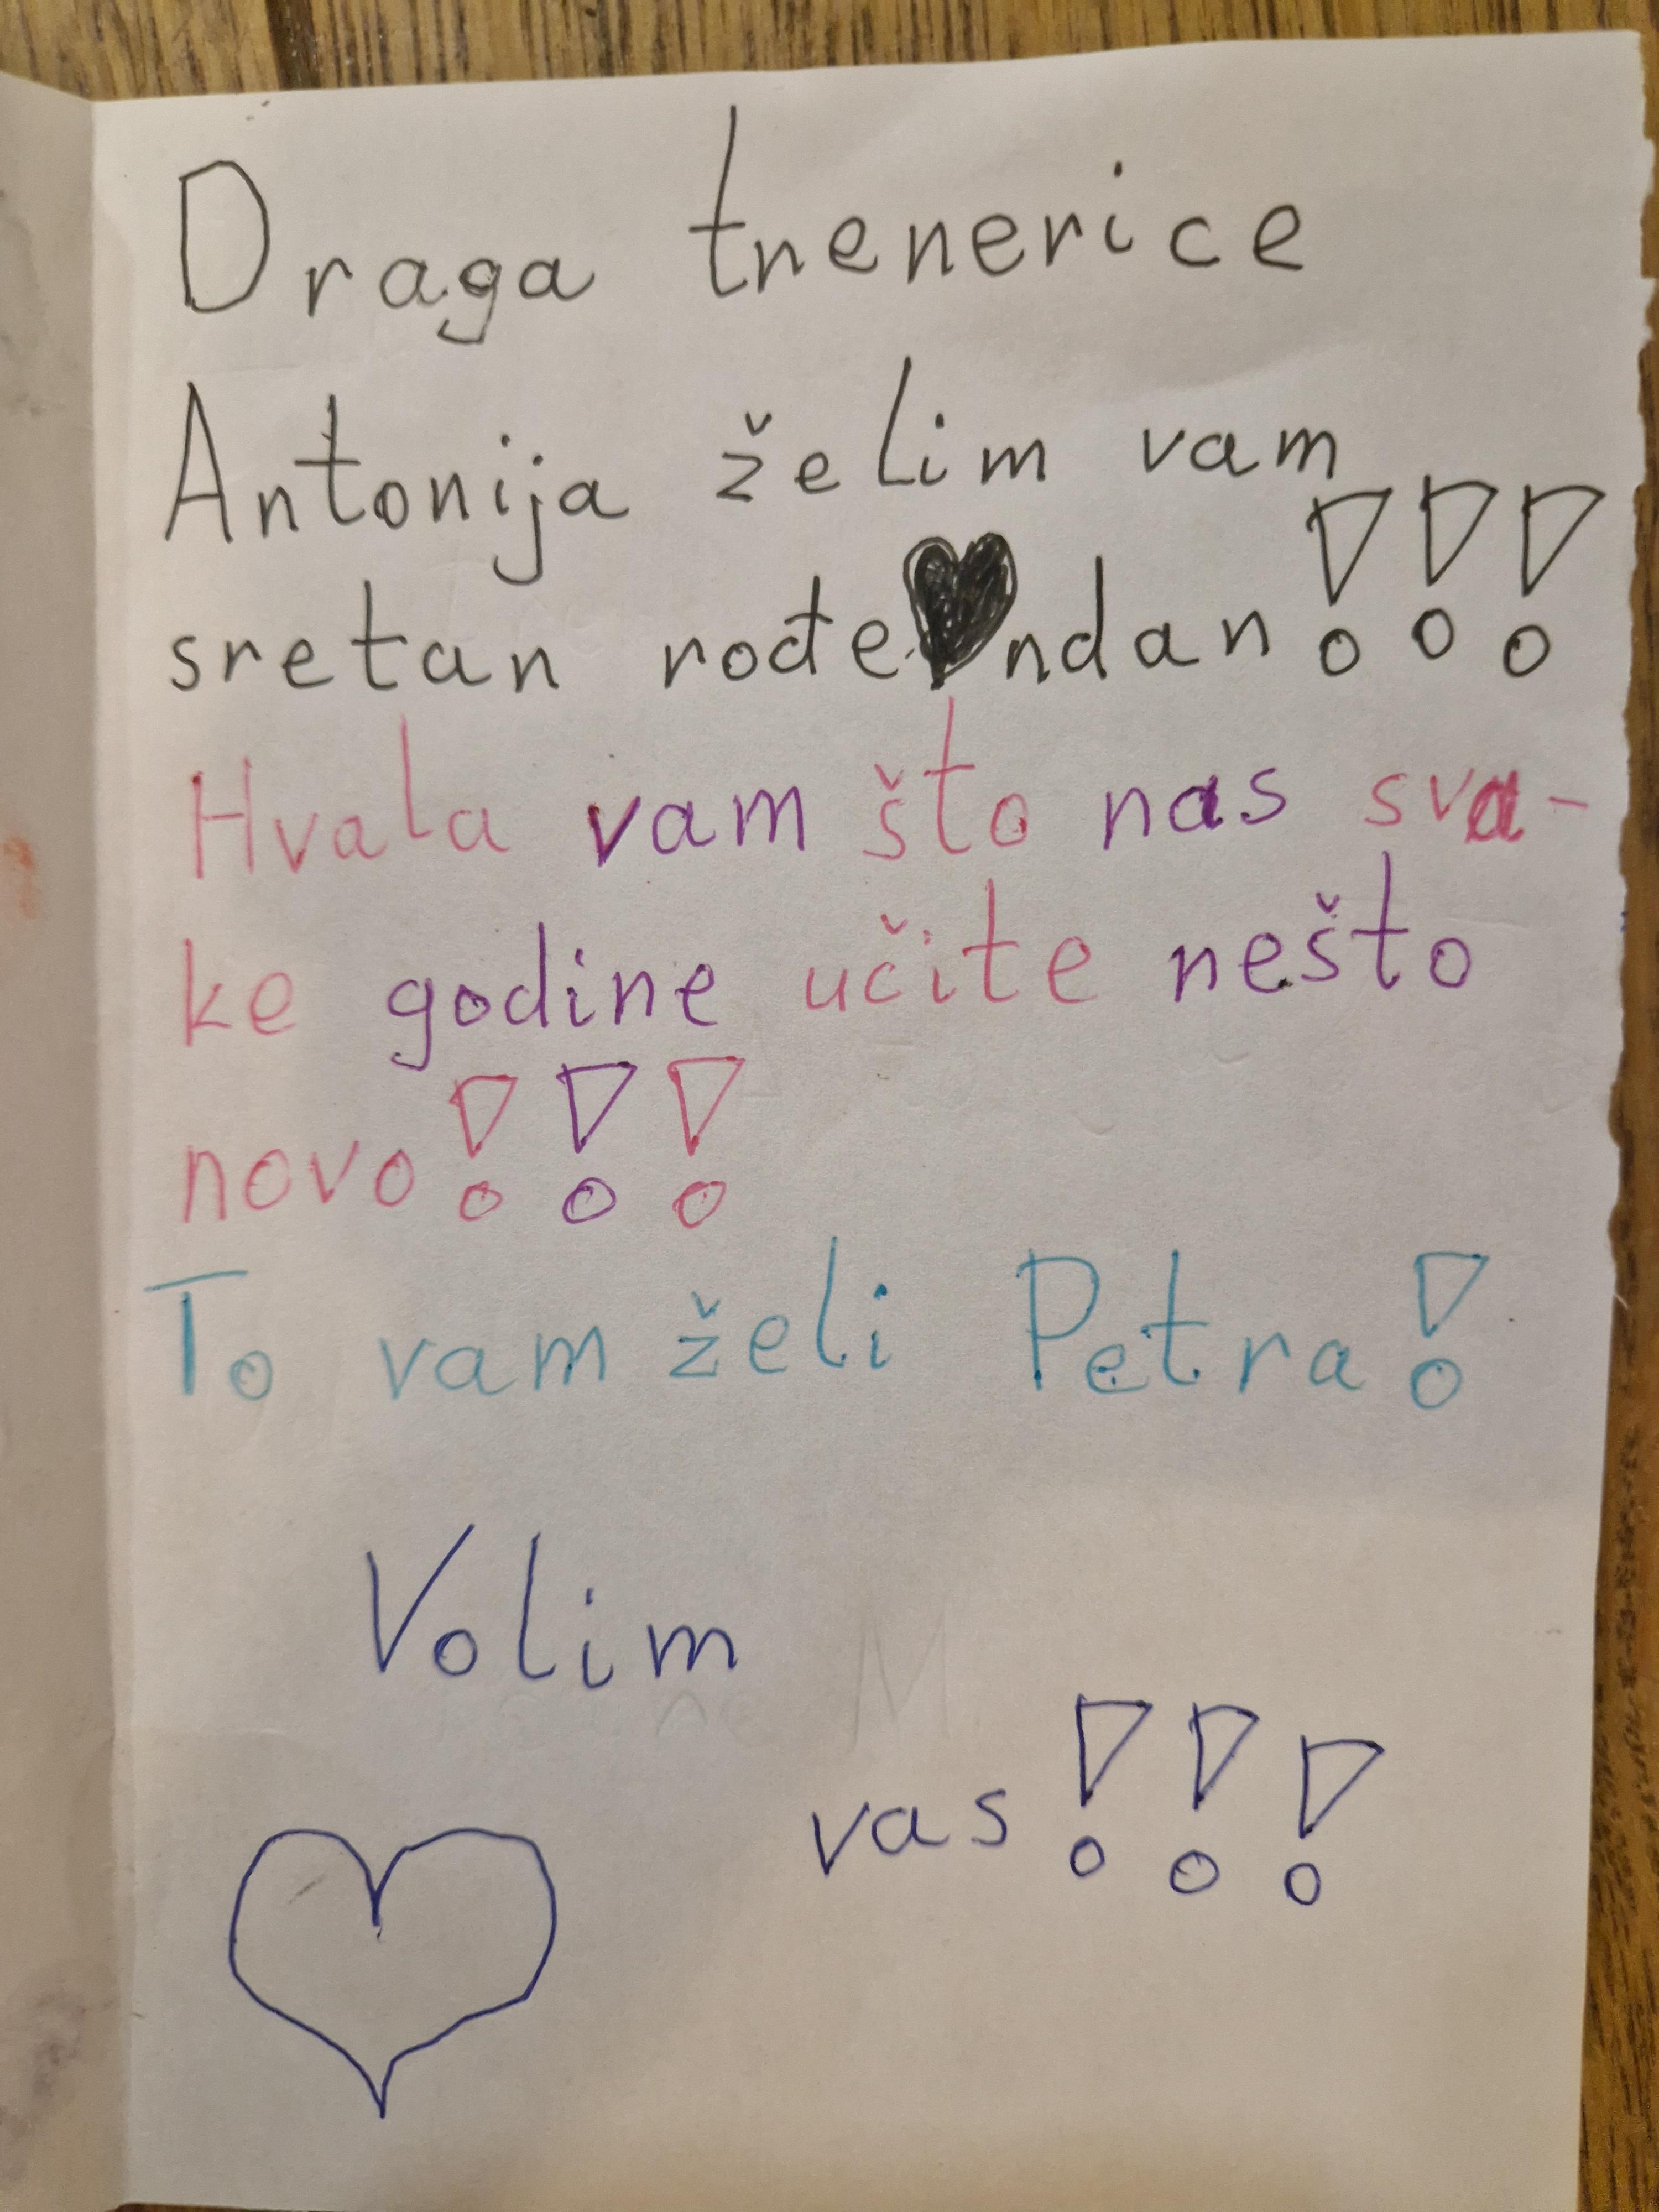 Draga trenerice
Antonija želim vam
sretan rođendan!!!
Hvala vam što nas sva-
ke godine učite nešto
novo!!!
To vam želi Petra!
Volim
vas!!!